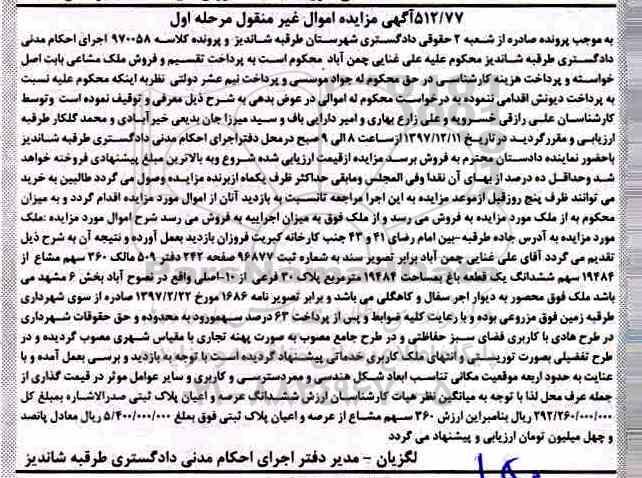 ۵۱۲/۷۷آگهی مزایده اموال غیر منقول مرحله اول
به موجب پرونده صادره از شعبه ۲ حقوقی دادگستری شهرستان طرقبه شاندیز و پرونده کلاسه ۹۷۰۰۵۸ اجرای احکام مدنی
دادگستری طرقبه شاندیز محکوم علیه علی غنایی چمن آباد محکوم است به پرداخت تقسیم و فروش ملک مشاعی بابت اصل
خواسته و پرداخت هزینه کارشناسی در حق محکوم له جواد موسسی و پرداخت نیم عشر دولتی نظربه اینکه محکوم علیه نسبت
به پرداخت دیونش اقدامی ننموده به درخواست محکوم له اموالی در عوض بدهی به شرح ذیل معرفی و توقیف نموده است وتوسط
کارشناسان علی رازقی خسرویه و علی زارع بهاری و امیر دارایی باف و سید میرزا جان بدیعی خیرآبادی و محمد گلکار طرقبه
ارزیابی و مقررگردید درتاریخ ۱۳۹۷/۱۲/۱۱ ازساعت ۸ الی ۹ صبح درمحل دفتراجرای احکام مدنی دادگستری طرقبه شاندیز
باحضور نماینده دادستان محترم به فروش برسد مزایده ازقیمت ارزیابی شده شروع وبه بالاترین مبلغ پیشنهادی فروخته خواهد
شد وحداقل ده درصد از بهای آن نقدا وفی المجلس ومابقی حداکثر ظرف یکماه ازبرنده مزایده وصول می گردد طالبین به خرید
می توانند ظرف پنج روزقبل ازموعد مزایده به این اجرا مراجعه تانسبت به بازدید آنان از اموال مورد مزایده اقدام گردد و به میزان
محکوم به از ملک مورد مزایده به فروش می رسد و از ملک فوق به میزان اجراییه به فروش می رسد شرح اموال مورد مزایده :ملک
مورد مزایده به آدرس جاده طرقبه-بین امام رضای ۴۱ و ۴۳ جنب کارخانه کبریت فروزان بازدید بعمل آورده و نتیجه آن به شرح ذیل
تقدیم می گردد آقای علی غنایی چمن آباد برابر تصویر سند به شماره ثبت ۹۶۸۷۷ صفحه ۲۴۲ دفتر ۵۰۹ مالک ۳۶۰ سهم مشاع از
۱۹۴۸۴ سهم ششدانگ یک قطعه باغ بمساحت ۱۹۴۸۴ مترمربع پلاک ۳۰ فرعی از ۱۰-اصلی واقع در نصوح آباد بخش ۶ مشهد می
باشد ملک فوق محصور به دیوار اجر سفال و کاهگلی می باشد و برابر تصویر نامه ۱۶۸۶ مورخ ۱۳۹۷/۲/۲۲ صادره از سوی شهرداری
طرقبه زمین فوق مزروعی بوده و با رعایت کلیه ضوابط و پس از پرداخت ۶۳ درصد سهم‌ورود به محدوده و حق حقوقات شهرداری
در طرح هادی با کاربری فضای سبز حفاظتی و در طرح جامع مصوب به صورت پهنه تجاری با مقیاس شهری مصوب گردیده و در
طرح تفضیلی بصورت توریستی و انتهای ملک کاربری خدماتی پیشنهاد گردیده است با توجه به بازدید و برسی بعمل آمده و با
عنایت به حدود اربعه موقعیت مکانی تناسب ابعاد شکل هندسی و معبردسترسی و کاربری و سایر عوامل موثر در قیمت گذاری از
جمله عرف محل لذا با توجه به میانگین نظر هیات کارشناسان ارزش ششدانگ عرصه و اعیان پلاک ثبتی صدرالاشاره بمبلغ کل
۲۹۲/۲۶۰/۰۰۰/۰۰۰ ریال بنامبراین ارزش ۳۶۰ سهم مشاع از عرصه و اعیان پلاک ثبتی فوق بملغ ۵/۴۰۰/۰۰۰/۰۰۰ ریال معادل پانصد
و چهل میلیون تومان ارزیابی و پیشنهاد می گردد
لگزیان - مدیر دفتر اجرای احکام مدنی دادگستری طرقبه شاندیز